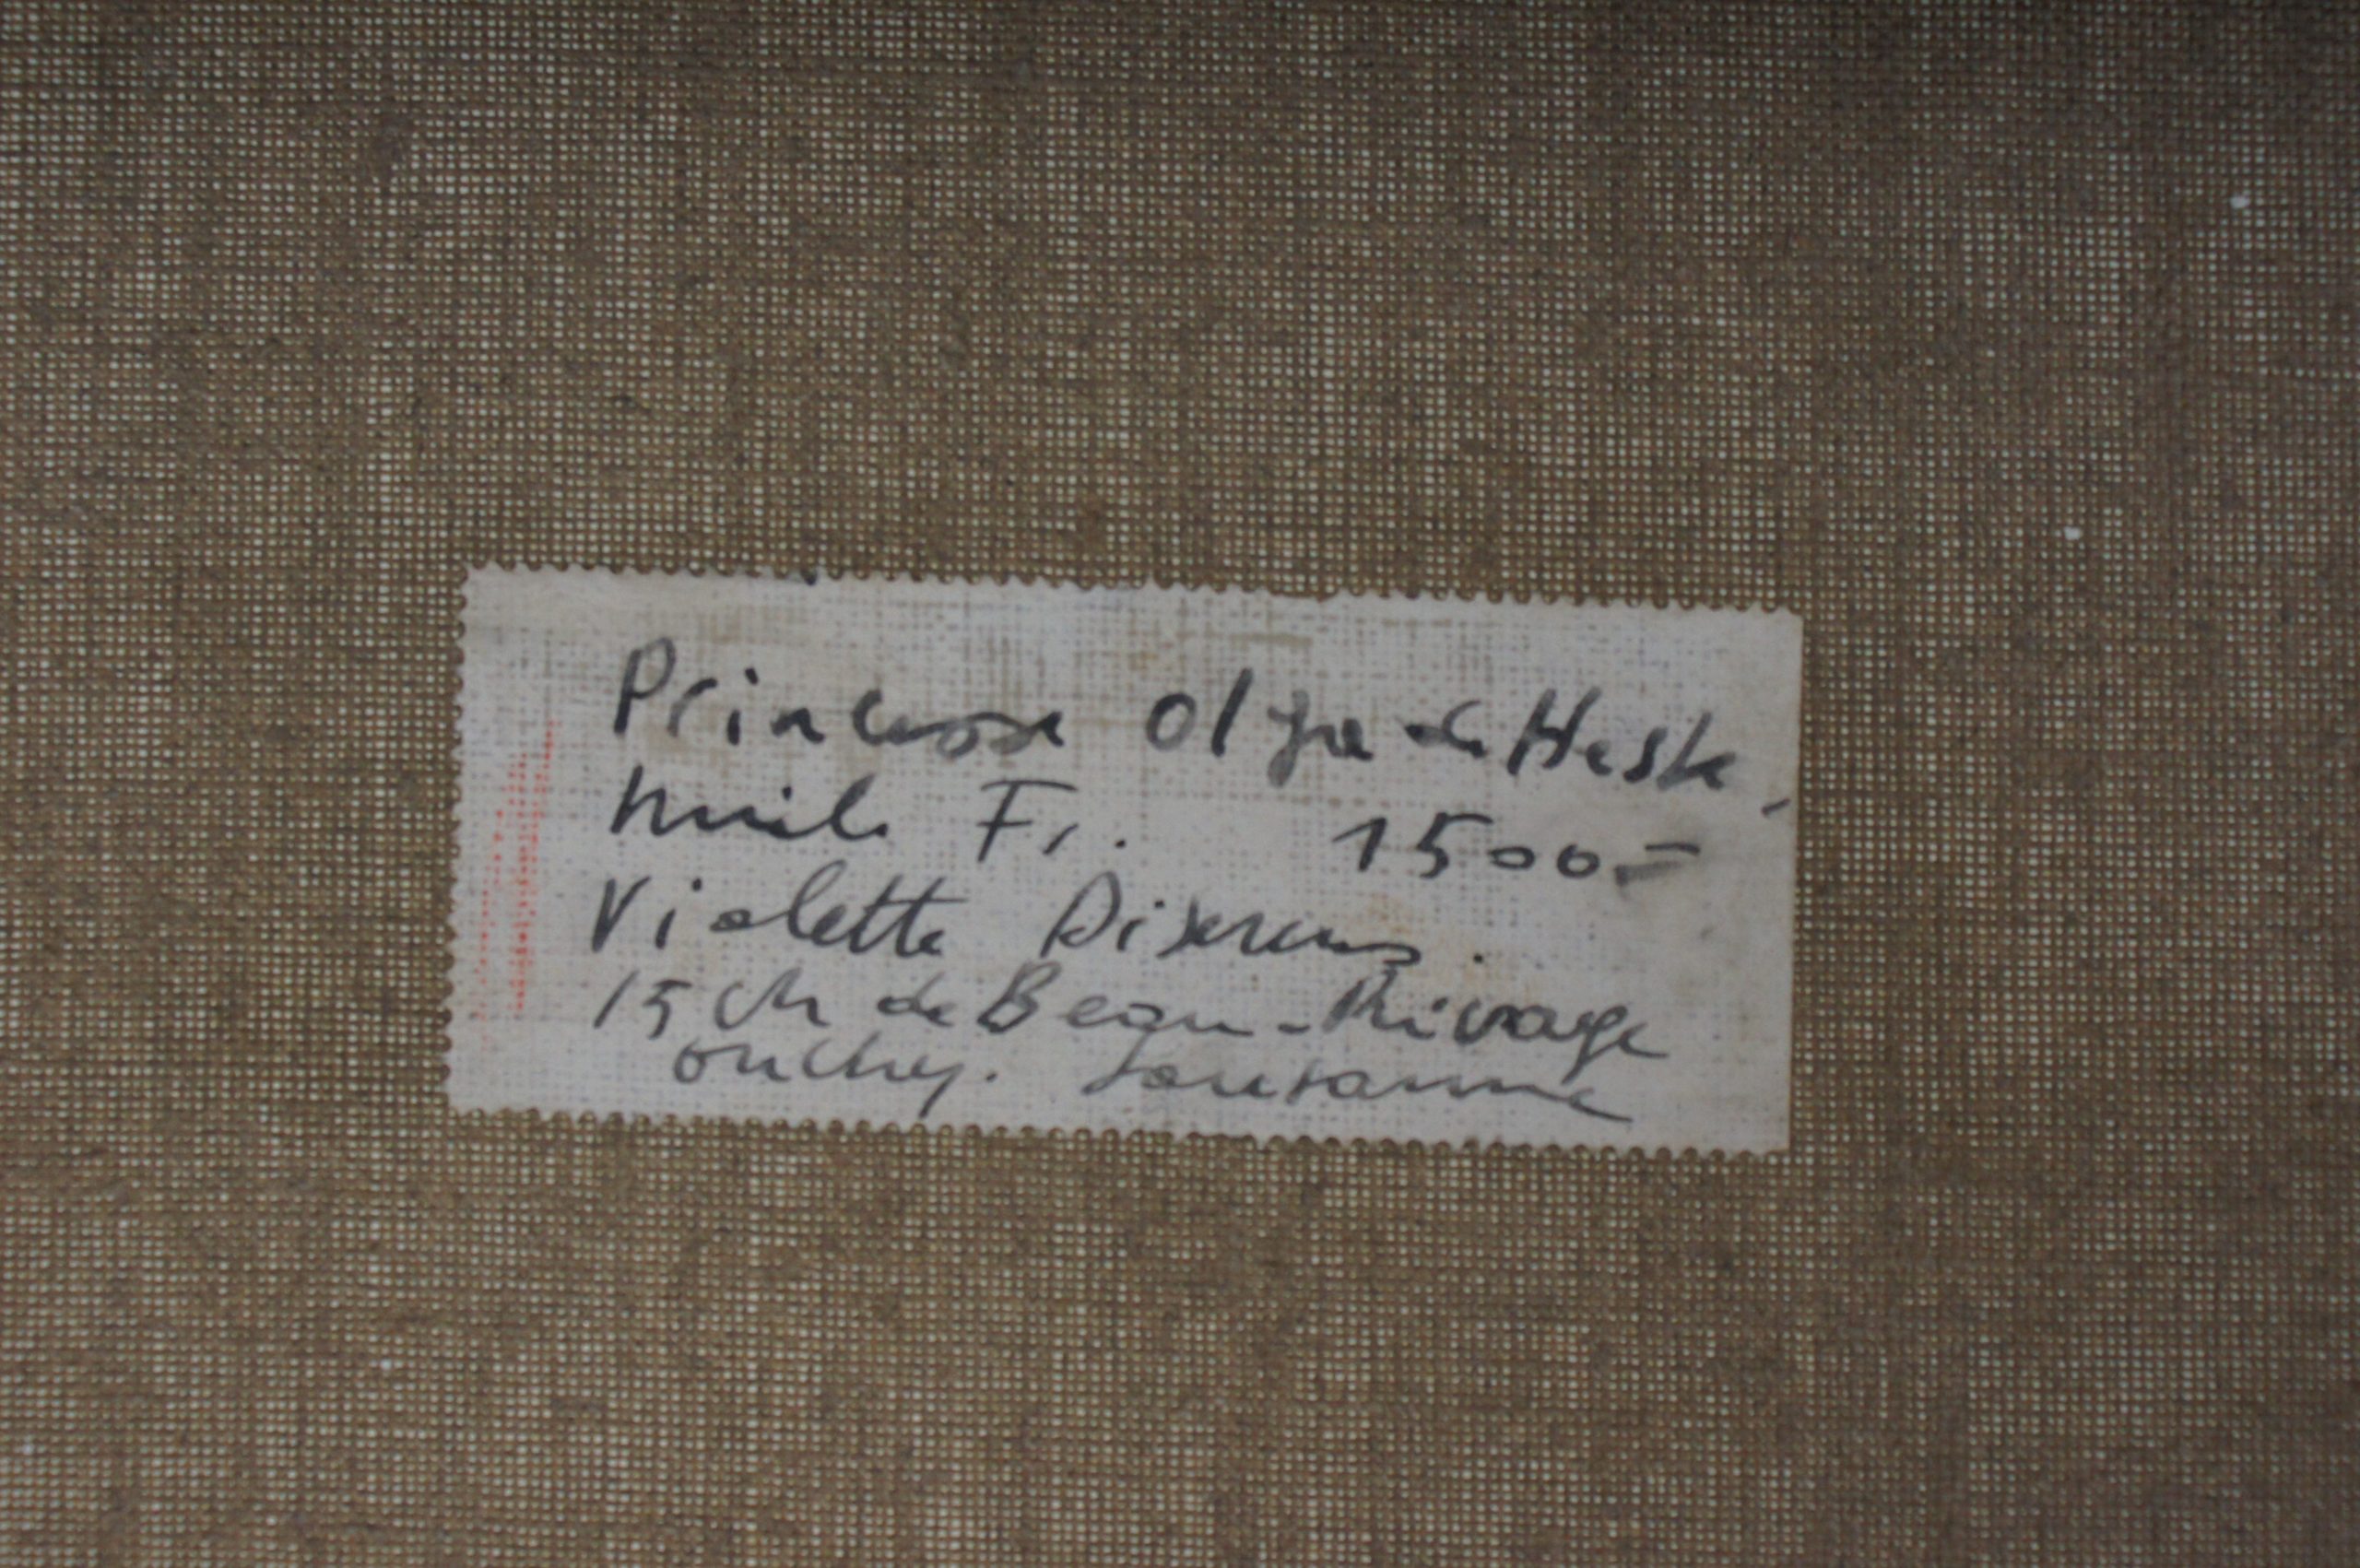 Princesse Olga de Hesse
huile Fr. 1500.-
Violette Diserens.
15 ch de Beau-Rivage
ouchy. Lausanne